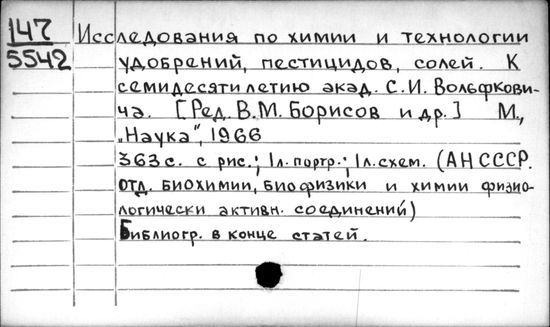 147 Исследования по химии и технологии
5542 удобрений, пестицидов, солей. К
семидесятилетию акад. С.И. Вольфкови-
ча. [Ред. В.М. Борисов и др.] М.,
„Наука", 1966
363 с. с рис.; 1 л. портр.; 1 л. схем. (АН СССР.
Отд. биохимии, биофизики и химии физио-
логически активн. соединений)
Библиогр. в конце статей.